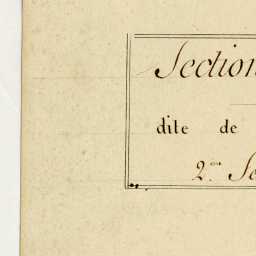 Section
dite de
2.me Se